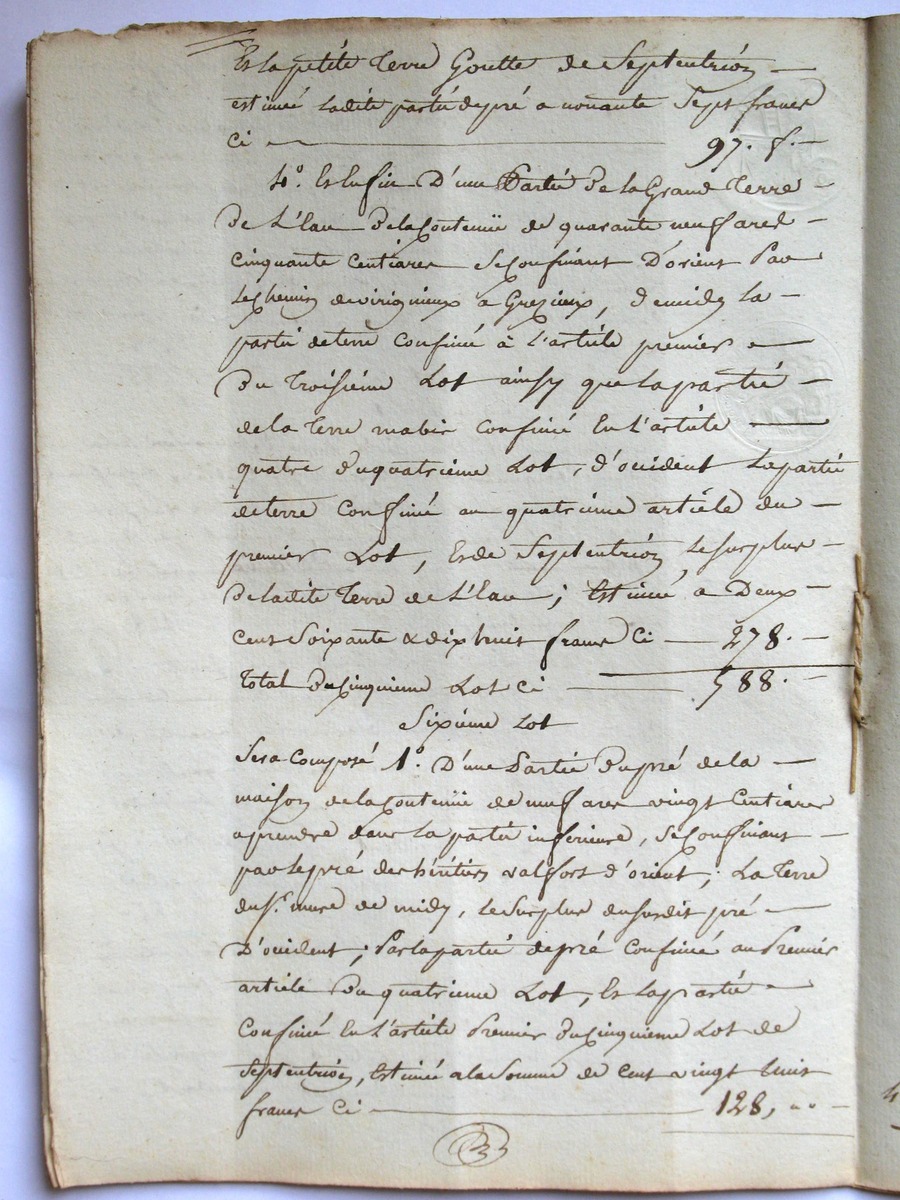 Et la petite Terre Goutte de Septentrion —
estimée ladite partie de pré a nonante Sept francs
Ci — 97. f. —
4.° Et Enfin D'une Partie De la Grand Terre —
De L'Eau De la Contenüe de quarante neuf ares —
Cinquante Centiares Se Confinant D'orient Par
Le Chemin de virignieux a Grezieux, De midy la —
partie de terre Confiné à L'article premier —
Du Troisiéme Lot ainsy que la partie —
de la Terre confiné En L'article —
quatre du quatrieme Lot, d'occident La partie
de terre Confiné au quatrieme article du —
premier Lot, Et de Septentrion Le Surplus —
De ladite Terre de L'Eau ; Estimée a Deux —
Cent Soixante & dix huit francs Ci — 278. —
Total du Cinquieme Lot Ci — 588. —
Sixiéme Lot
Sera Composé 1.° D'une Partie Du pré de la —
maison de la Contenüe de neuf ares vingt Centiares
a prendre dans La partie inferieure, Se Confinant —
par le pré des héritiers valfort d'orient ; La Terre
du S.r mure de midy, Le Surplus du Susdit pré —
D'occident ; Par la partie de pré Confiné au Premier
article Du quatrieme Lot, Et La partie —
Confiné En L'article Premier du Cinquieme Lot de
Septentrion, Estimée a la Somme de Cent vingt huit
francs Ci — 128, —